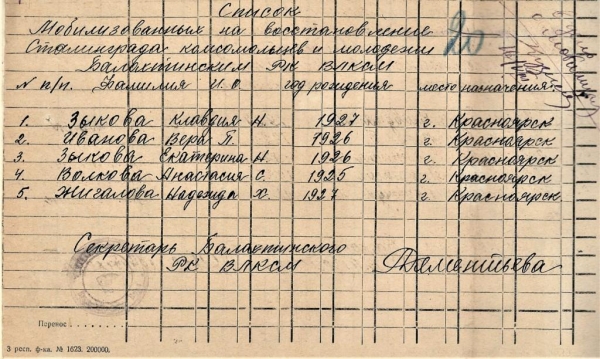 Список
Мобилизованных на восстановление
Сталинграда комсомольцев и молодежи
Балахтинским РК ВЛКСМ
20
N п/п. Фамилия И. О. год рождения место назначения
1. Зыкова Клавдия Н. 1927 г. Красноярск
2. Иванова Вера П. 1926 г. Красноярск
3. Зыкова Екатерина Н 1926 г. Красноярск
4. Волкова Анастасия С. 1925 г. Красноярск
5. Жигалова Надежда Х. 1927 г. Красноярск.
Секретарь Балахтинского
РК ВЛКСМ Дементьева
Перенос
3 респ. ф-ка. № 1623. 200000.